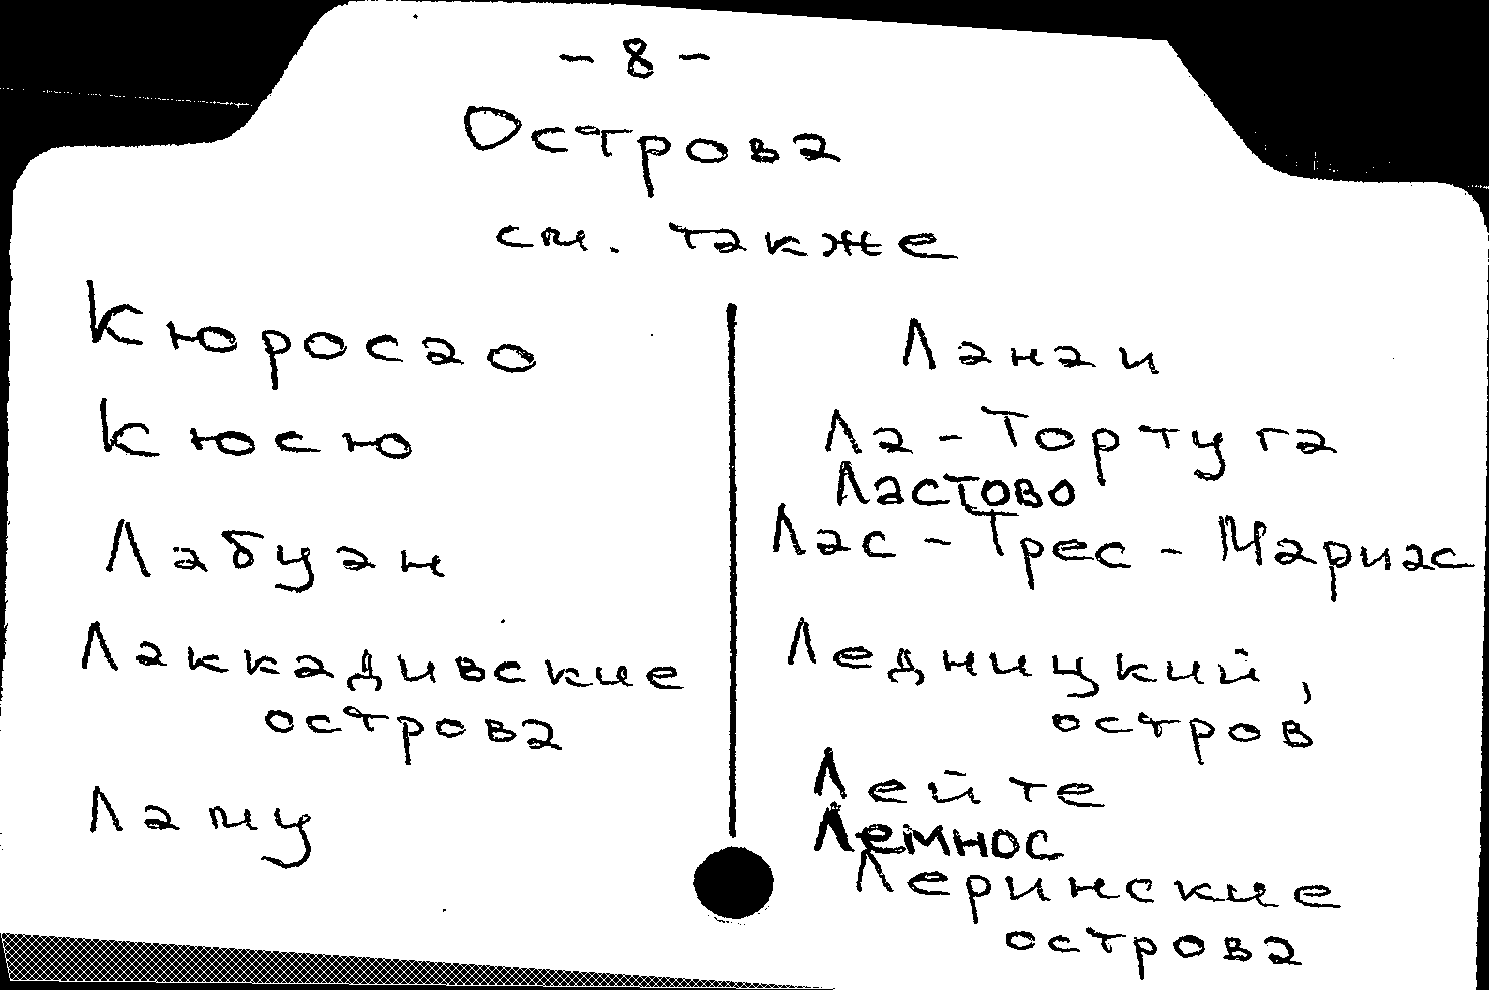 - 8 -
Острова
см. также
Кюросао
Кюсю
Лабуан
Лаккадивские
острова
Ламу
Ланаи
Ла-Тортуга
Ластово
Лас-Трес-Мариас
Ледницкий,
остров
Лейте
Лемнос
Леринские
острова